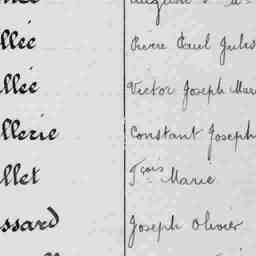 llée Pierre Paul Jules
llée Victor Joseph Mari
llerie Constant Joseph
llet Fçois Marie
ssard Joseph Olivier